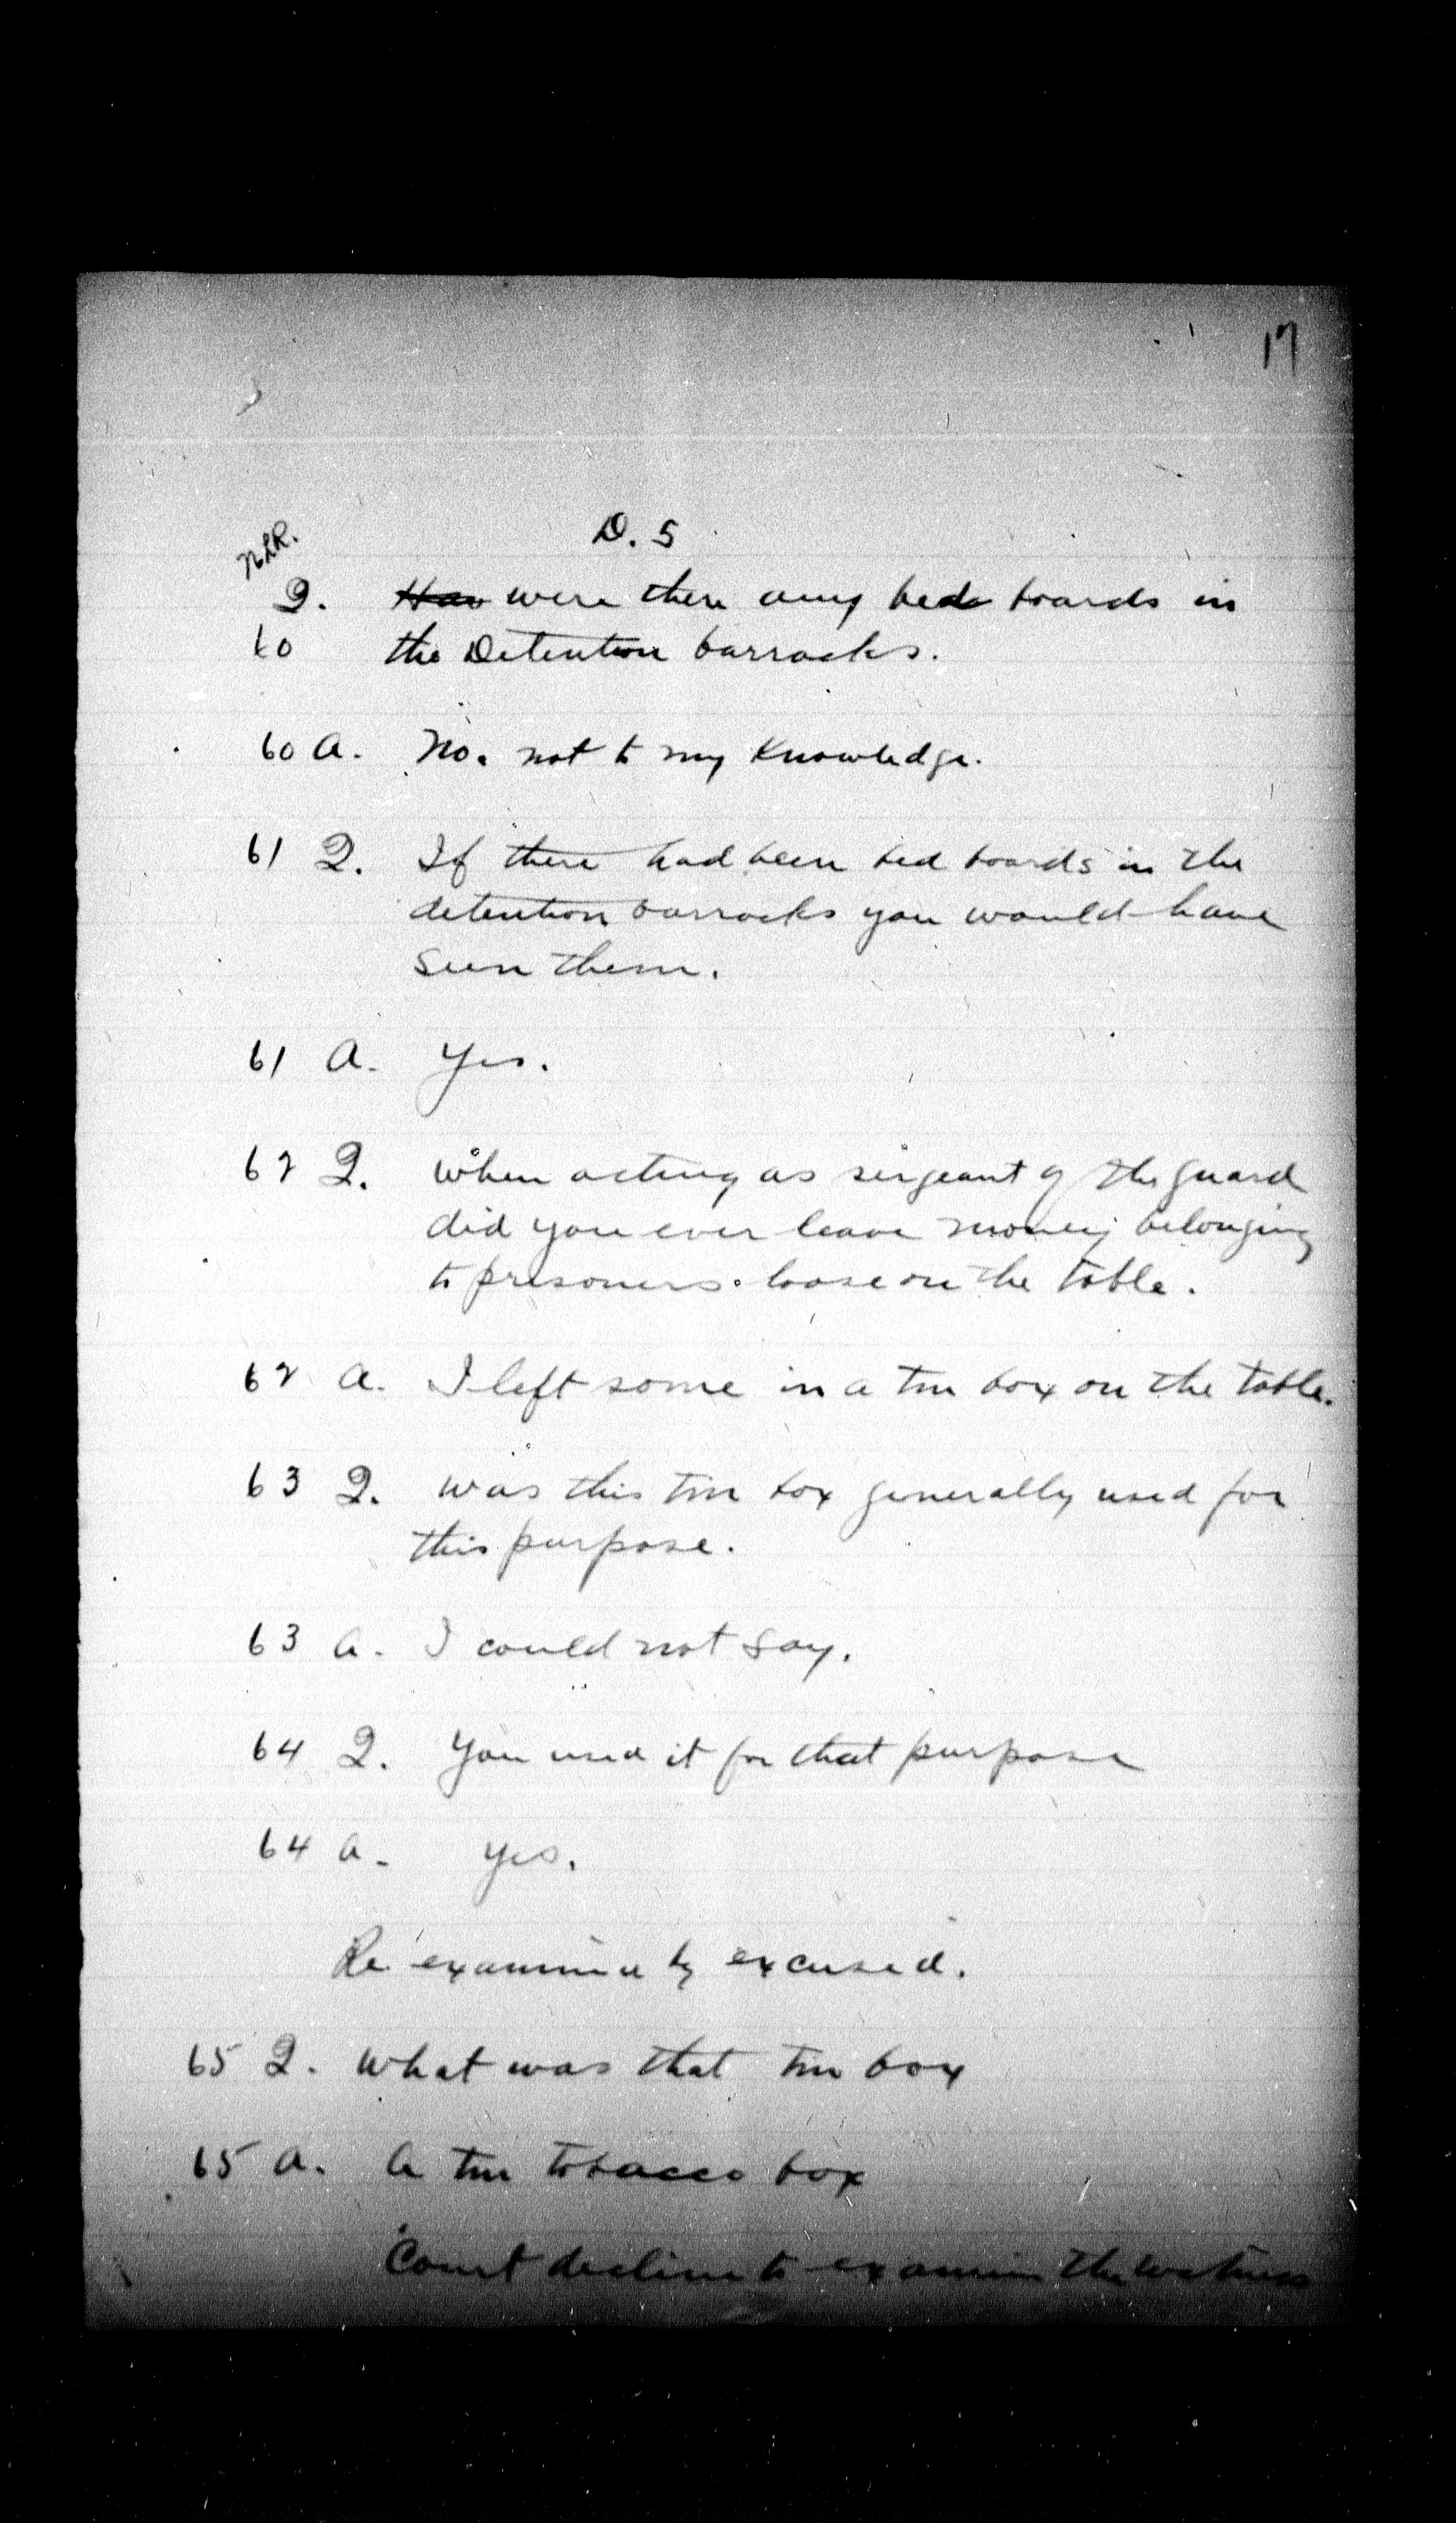 17
D. 5
NLR.
Q. were there any bed boards in
60 the Detention barracks.
60 A. No. not to my Knowledge.
61 Q. If there had been bed boards in the
detention barracks you would have
seen them.
61 A. Yes.
62 Q. When acting as sergeant of the guard
did you ever leave money belonging
to prisoners loose on the table.
62 A. I left some in a tin box on the table.
63 Q. Was this tin box generally used for
this purpose.
63 A. I could not say.
64 Q. You used it for that purpose
64 A. Yes.
Re examined by excused.
65 Q. What was that tin box
65 A. A tin tobacco box
Court decline to examine the witness